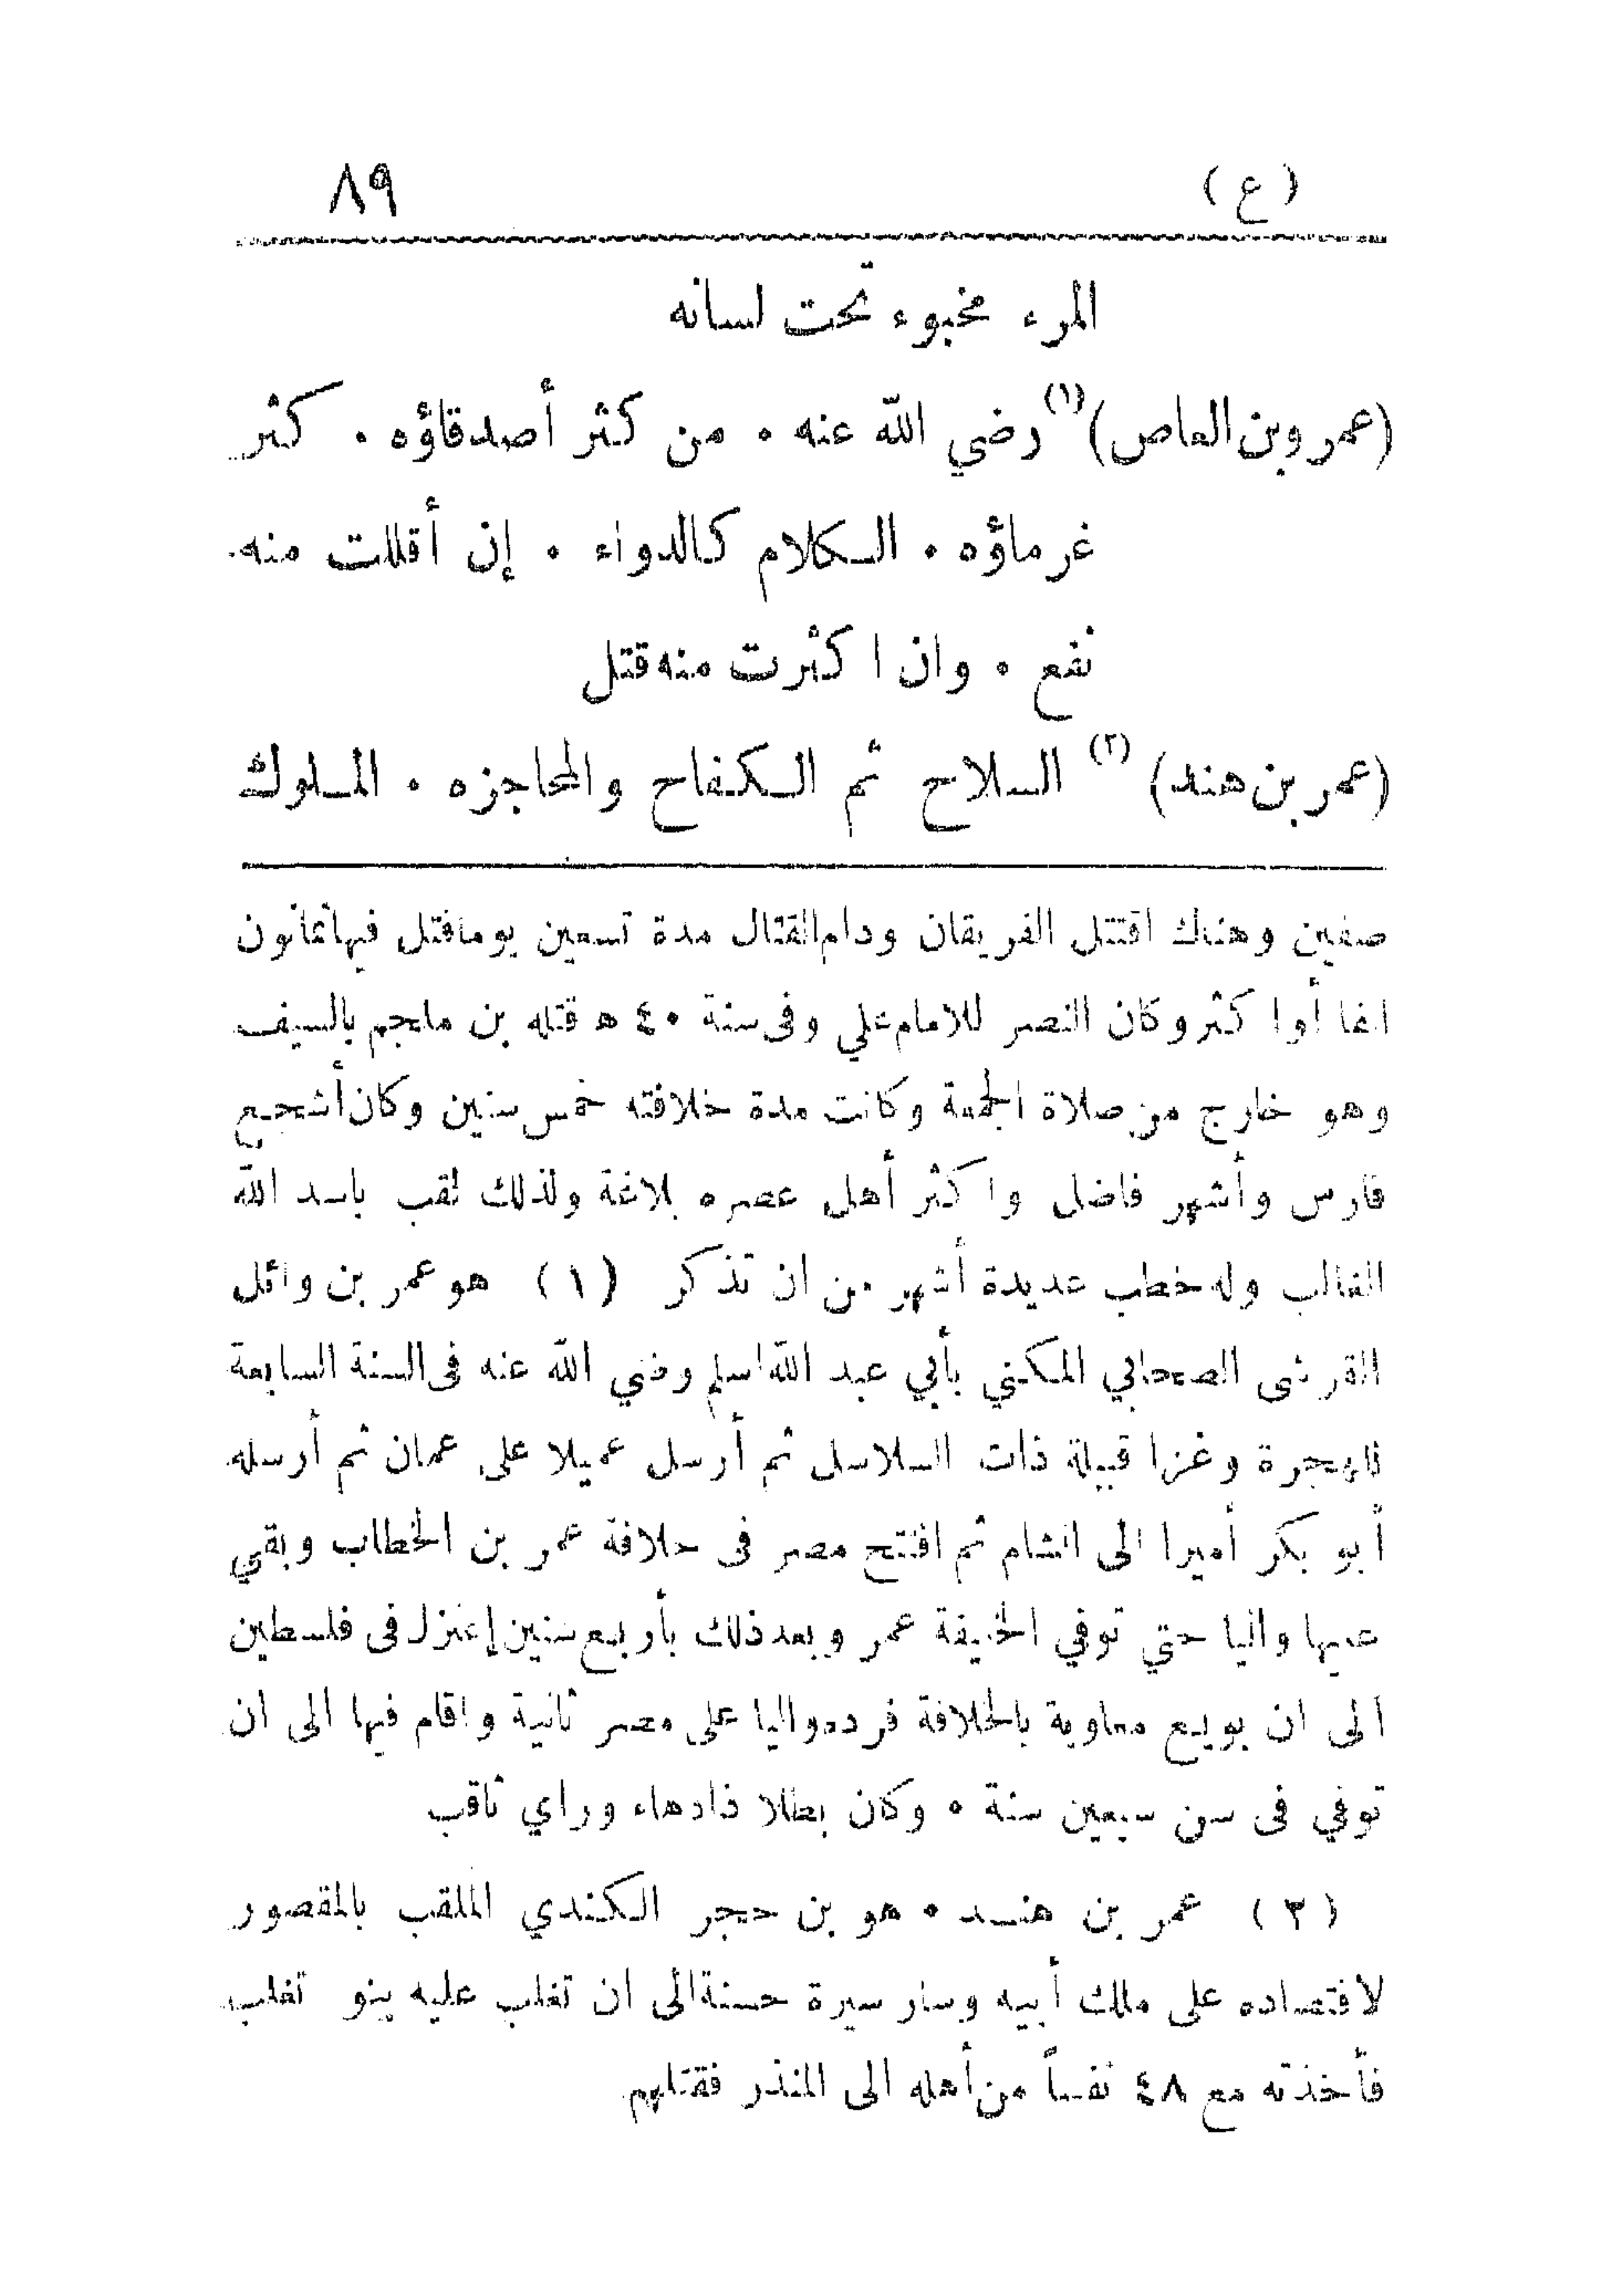 (ع) ٨٩
المرء مخبوء تحت لسانه
(عمر وبن العاص)(١) رضي الله عنه ٠ من كثر أصدقاؤه ٠ كثر
غرماؤه ٠ الكلام كالدواء ٠ إن أقللت منه
نفع ٠ وان اكثرت منه قتل
(عمر بن هند) (٢) السلاح ثم الكفاح والمحاجزه ٠ الملوك
صفين وهناك اقتتل الفريقان ودام القتال مدة تسعين يوما فتل فيها ثمانون
الفا أوا كثر وكان النصر للامام علي وفى سنة ٤٠ ه قتله بن ملجم بالسيف
وهو خارج من صلاة الجمعة وكانت مدة خلافته خمس سنين وكان أشجع
فارس وأشهر فاضل واكثر أهل عصره بلاغة ولذلك لقب باسد الله
الغالب وله خطب عديدة أشهر من ان تذكر (١) هو عمر بن وائل
القرشى الصحابي المكني بأبي عبد الله اسلم رضي الله عنه فى السنة السابعة
للهجرة وغزا قبيلة ذات السلاسل ثم أرسل عميلا على عمان ثم أرسله
أبو بكر أميرا الى الشام ثم افتتح مصر فى خلافة عمر بن الخطاب وبقي
عليها واليا حتي توفي الخليفة عمر وبعد ذلك بأربع سنين إعتزل فى فلسطين
الى ان بويع معاوية بالخلافة فرده واليا على مصر ثانية واقام فيها الى ان
توفي فى سن سبعين سنة ٠ وكان بطلا ذا دهاء وراي ثاقب
(٢) عمر بن هند ٠ هو بن حجر الكندي الملقب بالمقصور
لاقتصاده على ملك أبيه وسار سيرة حسنة الى ان تغلب عليه بنو تغلب
فأخذته مع ٤٨ نفساً من أهله الى المنذر فقتلهم